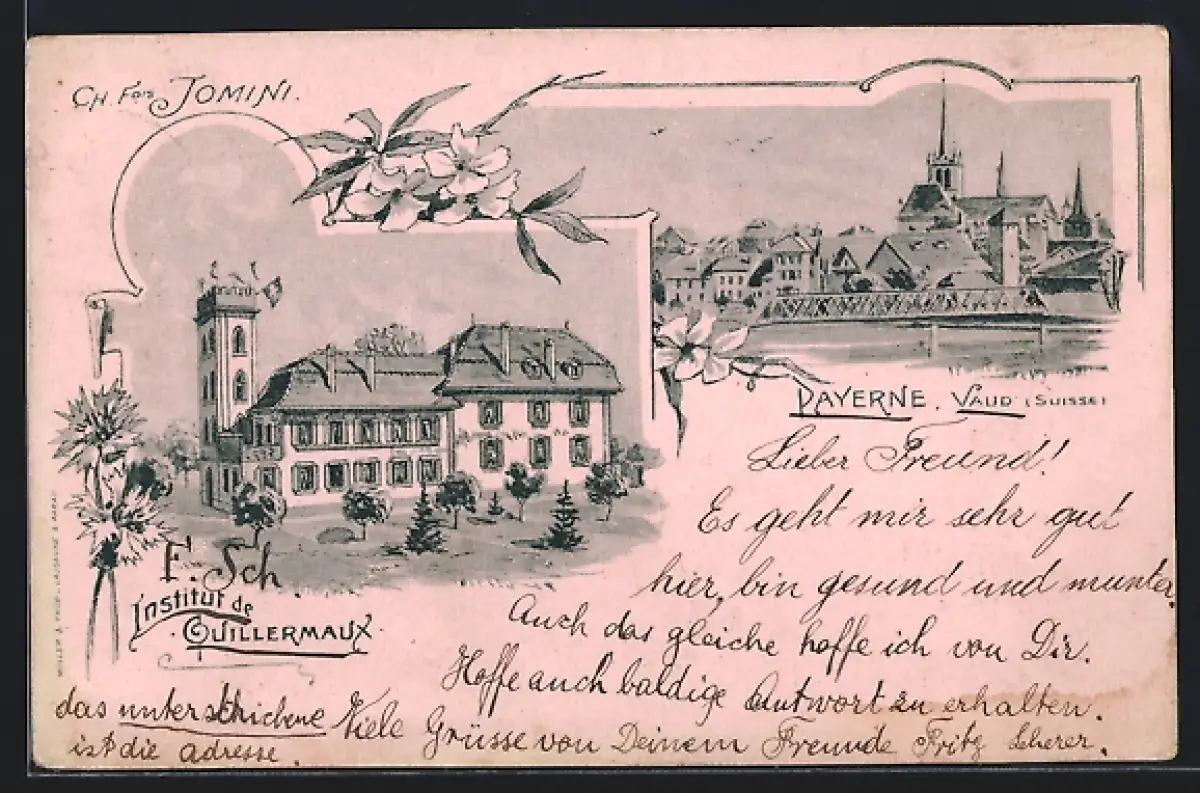 CH. Fois JOMINI.
PAYERNE. VAUD (SUISSE)
Lieber Freund!
Es geht mir sehr gut
hier, bin gesund und munter.
Auch das gleiche hoffe ich von Dir.
Hoffe auch baldige Antwort zu erhalten.
Viele Grüsse von Deinem Freunde Fritz Scherer.
F. Sch
INSTITUT de
GUILLERMAUX.
das unterschtichene
ist die adresse.
MÜLLER & TRÜB - LAUSANNE & AARAU